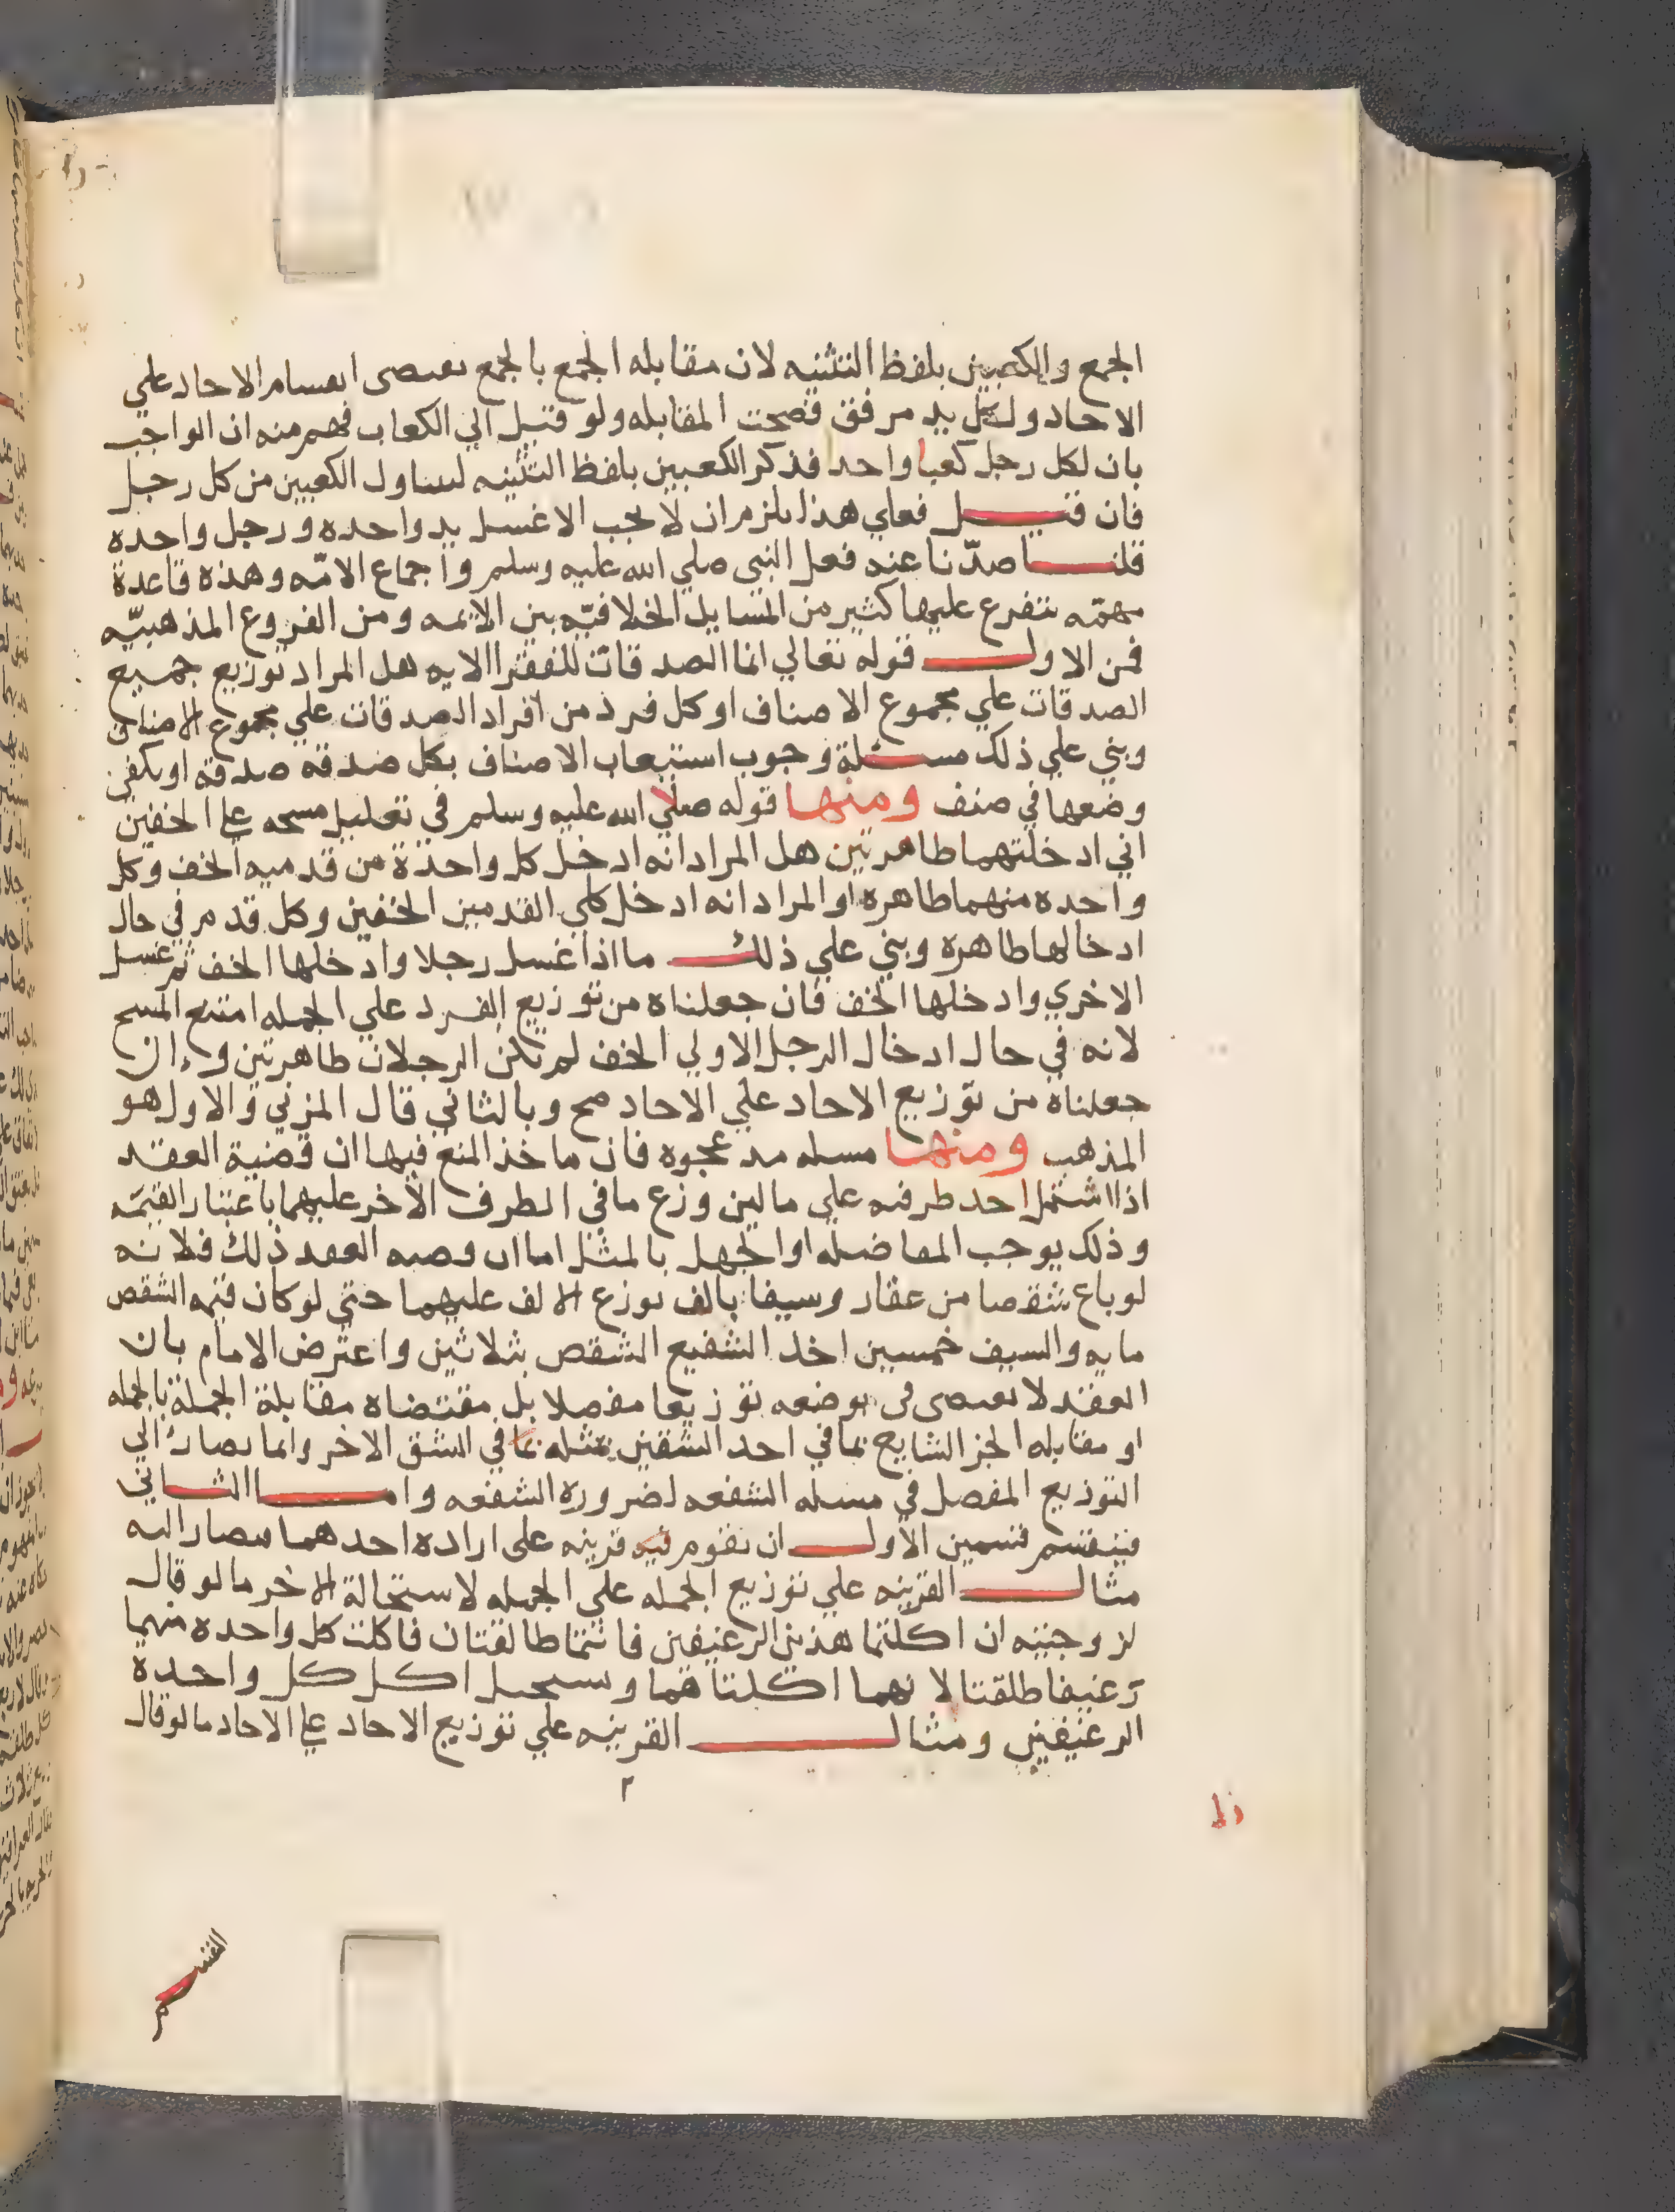 الجمع والكعبين بلفظ التثنيه لان مقابله الجمع بالجمع يقتضى انقسام الاحاد علي
الاحاد ولكل يد مرفق فصحت المقابله ولو قيل الي الكعاب فهم منه ان الواجب
بان لكل رجل كعبا واحد فذكر الكعبين بلفظ التثنيه ليتناول الكعبين من كل رجل
فان قيل فعلي هذا يلزم ان لا يجب الا غسل يد واحده ورجل واحده
قلنا صدّنا عنه فعل النبي صلي الله عليه وسلم واجماع الامّه وهذه قاعدة
مهمّه يتفرع عليها كثير من المسايل الخلافيّه بين الايمه ومن الفروع المذهبيّه
فمن الاول قوله تعالي انما الصدقات للفقرا الايه هل المراد توزيع جميع
الصدقات علي مجموع الاصناف او كل فرد من افراد الصدقات علي مجموع الاصناف
وبني علي ذلك مسئلة وجوب استيعاب الاصناف بكل صدقه صدقه او يكفي
وضعها في صنف ومنها قوله صلي الله عليه وسلم في تعليل مسحه علي الخفين
اني ادخلتهما طاهرتين هل المراد انه ادخل كل واحدة من قدميه الخف وكل
واحده منهما طاهره او المراد انه ادخل كلي القدمين الخفين وكل قدم في حال
ادخالها طاهرة وبني علي ذلك ما اذا غسل رجلا وادخلها الخف ثم غسل
الاخري وادخلها الخف فان جعلناه من توزيع الفرد علي الجمله امتنع المسح
لانه في حال ادخال الرجل الاولي الخف لم تكن الرجلان طاهرتين وان
جعلناه من توزيع الاحاد علي الاحاد صح وبالثاني قال المزني والاول هو
المذهب ومنها مسله مد عجوه فان ماخذ المنع فيها ان قضية العقد
اذا اشتمل احد طرفيه علي مالين وزع ما في الطرف الاخر عليهما باعتبار القيمه
وذلك يوجب المفاضله او الجهل بالمثل اما ان قضيه العقد ذلك فلانه
لو باع شقصا من عقار وسيفا بالف يوزع الالف عليهما حتي لو كان قيمه الشقص
مايه والسيف خمسين اخذ الشفيع الشقص بثلاثين واعترض الامام بان
العقد لا يقتضى في موضعه توزيعا مفصلا بل مقتضاه مقابلة الجملة بالجمله
او مقابله الجز الشايع بما في احد الشقين بمثله مما في الشق الاخر وانما يصار الي
التوزيع المفصل في مسله الشفعه لضرورة الشفعه واما الثاني
فينقسم قسمين الاول ان تقوم فيه قرينه على اراده احدهما فيصار اليه
مثال القرينه علي توزيع الجمله علي الجمله لاستحالة الاخر ما لو قال
لزوجتيه ان اكلتما هذين الرغيفين فانتما طالقتان فاكلت كل واحده منهما
رغيفا طلقتا لانهما اكلتاهما ويستحيل اكل كل واحدة
الرغيفين ومثال القرينه علي توزيع الاحاد علي الاحاد ما لو قال